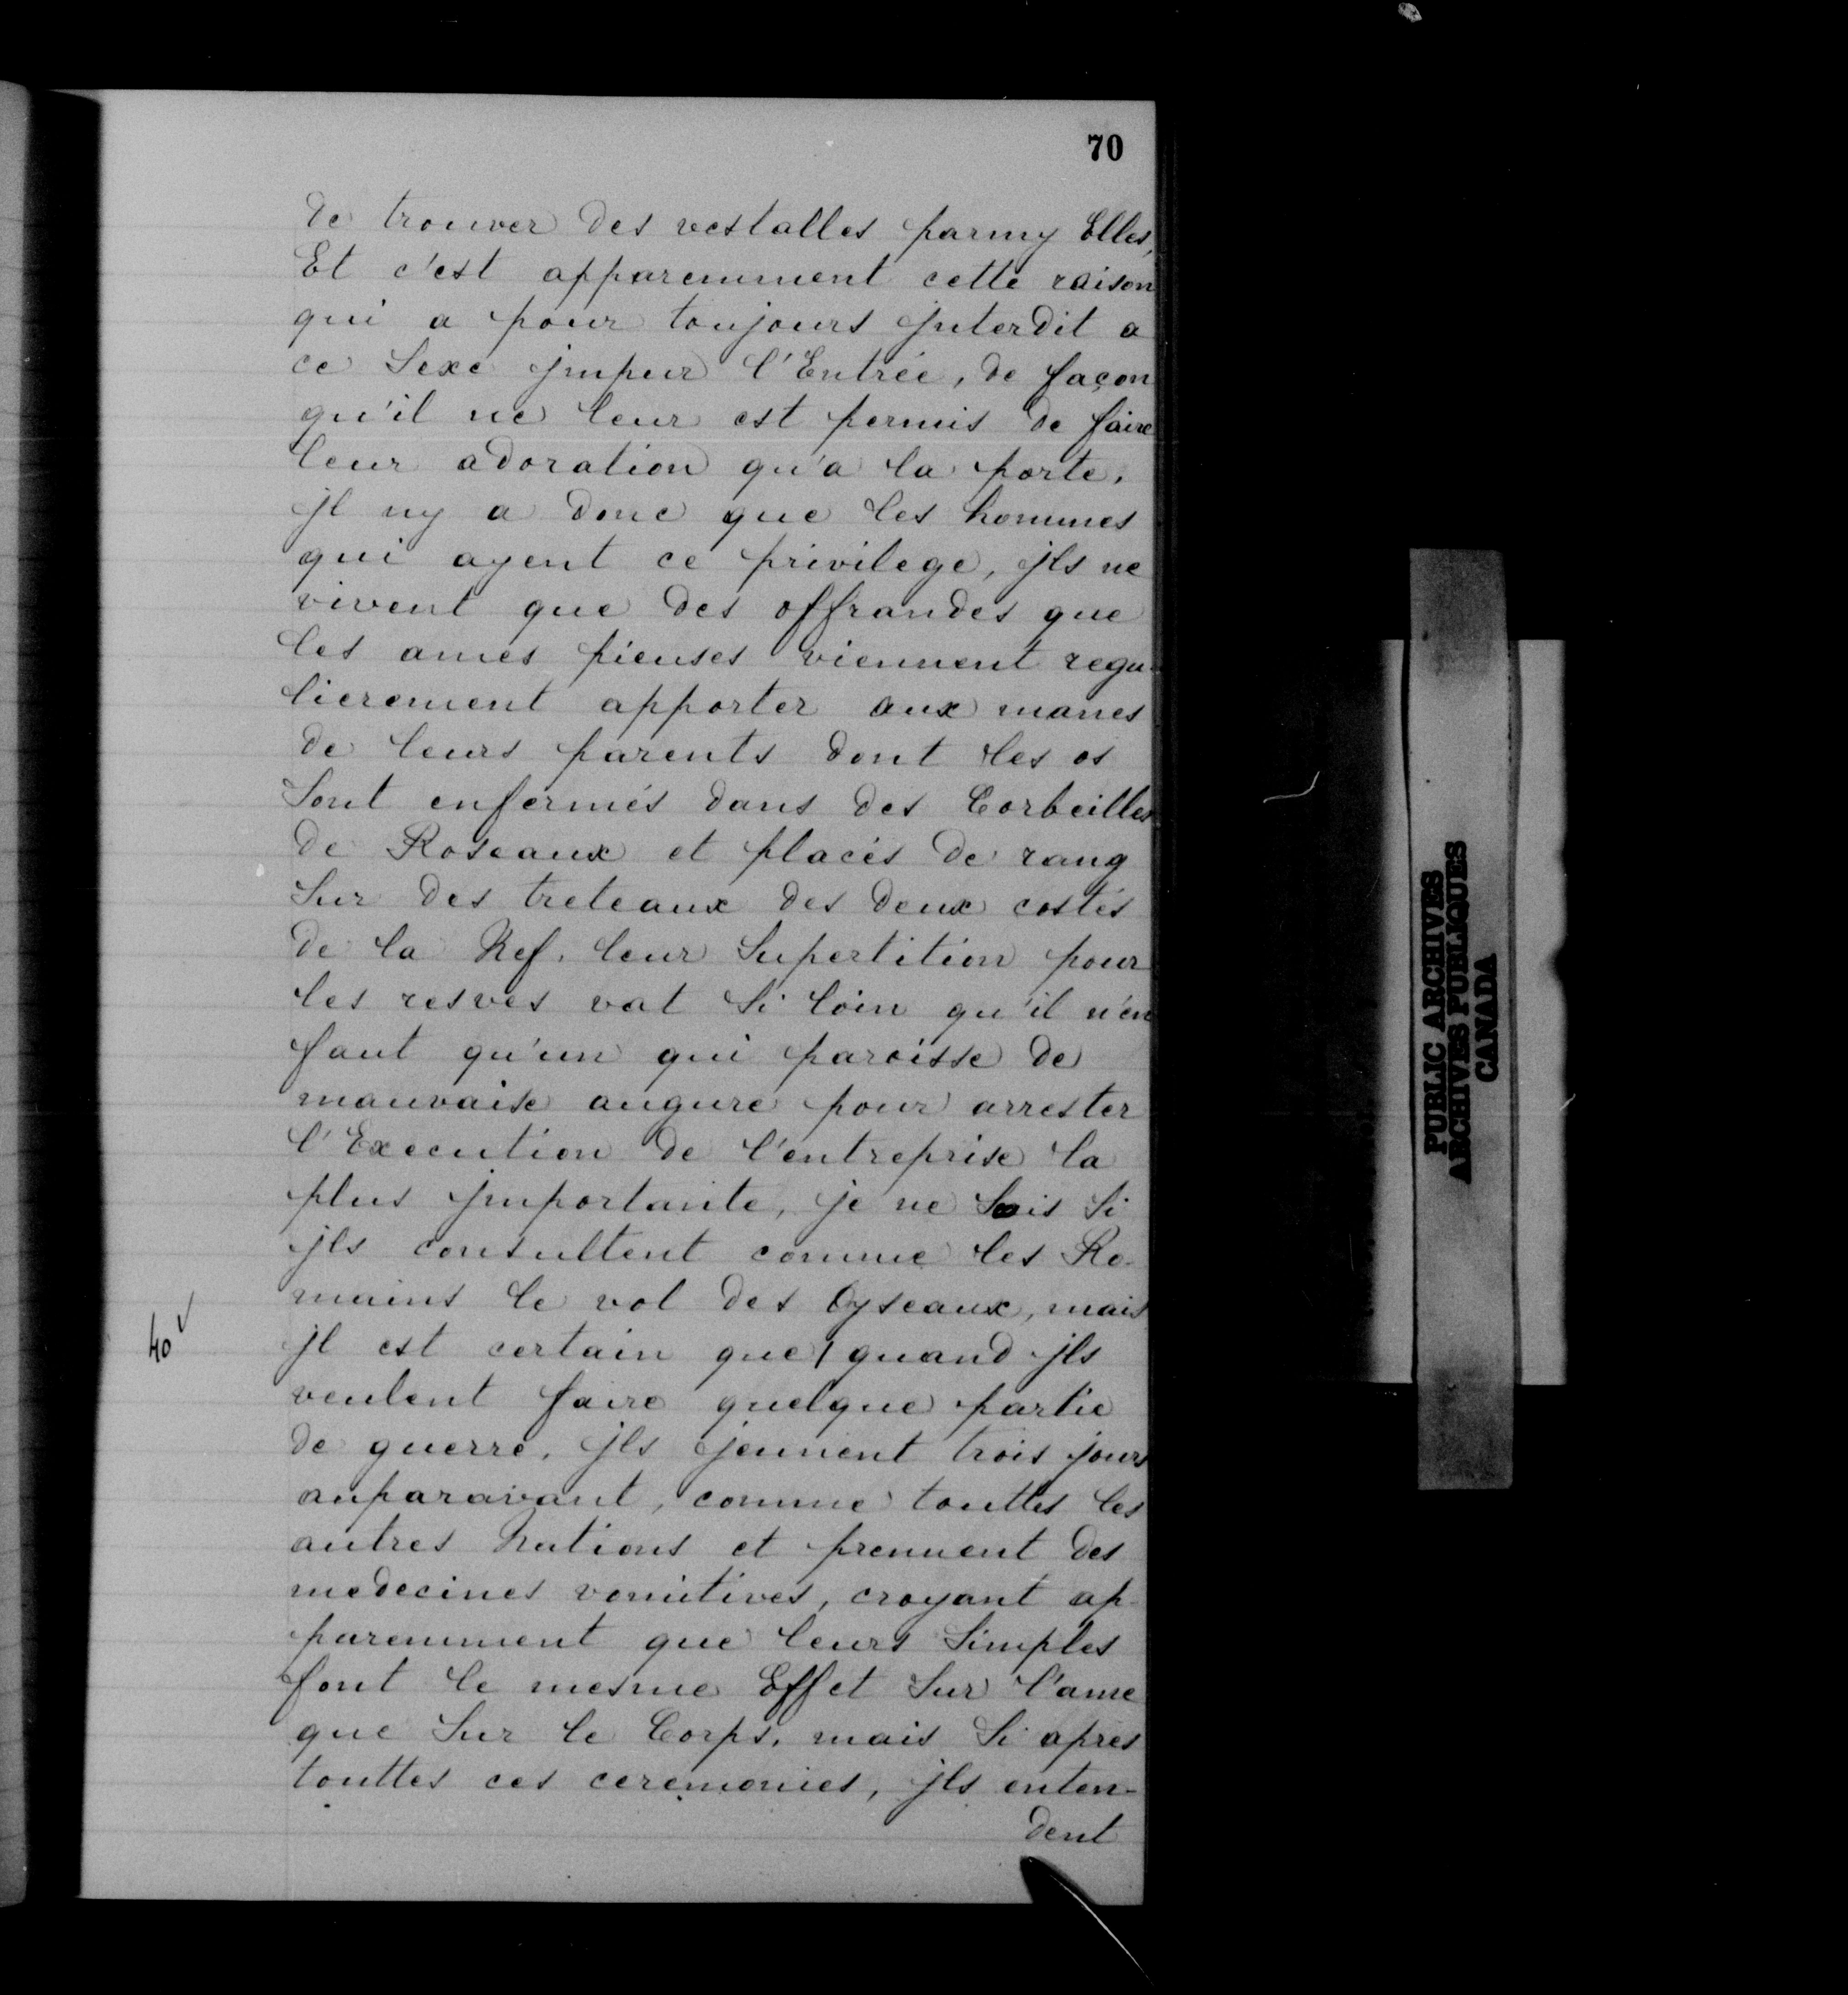 70
de trouver des vestalles parmy Elles,
Et c'est apparemment cette raison
qui a pour toujours jnterdit a
ce Sexe jmpur l'Entrée, de façon
qu'il ne leur est permis de faire
leur adoration qu'a la porte.
jl ny a donc que les hommes
qui ayent ce privilege, jls ne
vivent que des offrandes que
les ames pieuses viennent regu-
lierement apporter aux manes
de leurs parents dont les os
Sont enfermés dans des Corbeilles
de Roseaux et placés de rang
Sur des treteaux des deux costés
de la Nef. leur Supertition pour
les resves vat Si loin qu'il n'en
faut qu'un qui paroisse de
mauvaise augure pour arrester
l'Execution de l'entreprise la
plus jmportante, je ne Sais Si
jls consultent comme les Ro-
mains le vol des Oyseaux, mais
40v
jl est certain que / quand jls
veulent faire quelque partie
de guerre, jls jeunent trois jours
auparavant, comme touttes les
autres Nations et prennent des
medecines vomitives, croyant ap-
paremment que leurs Simples
font le mesme Effet Sur l'ame
que Sur le Corps. mais Si apres
touttes ces ceremonies, jls enten-
dent
PUBLIC ARCHIVES
ARCHIVES PUBLIQUES
CANADA